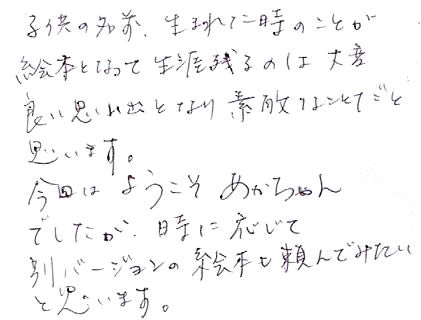 子供の名前、生まれた時のことが
絵本となって生涯残るのは大変
良い思い出となり素敵なことだと
思います。
今回はようこそあかちゃん
でしたが、時に応じて
別バージョンの絵本も頼んでみたい
と思います。